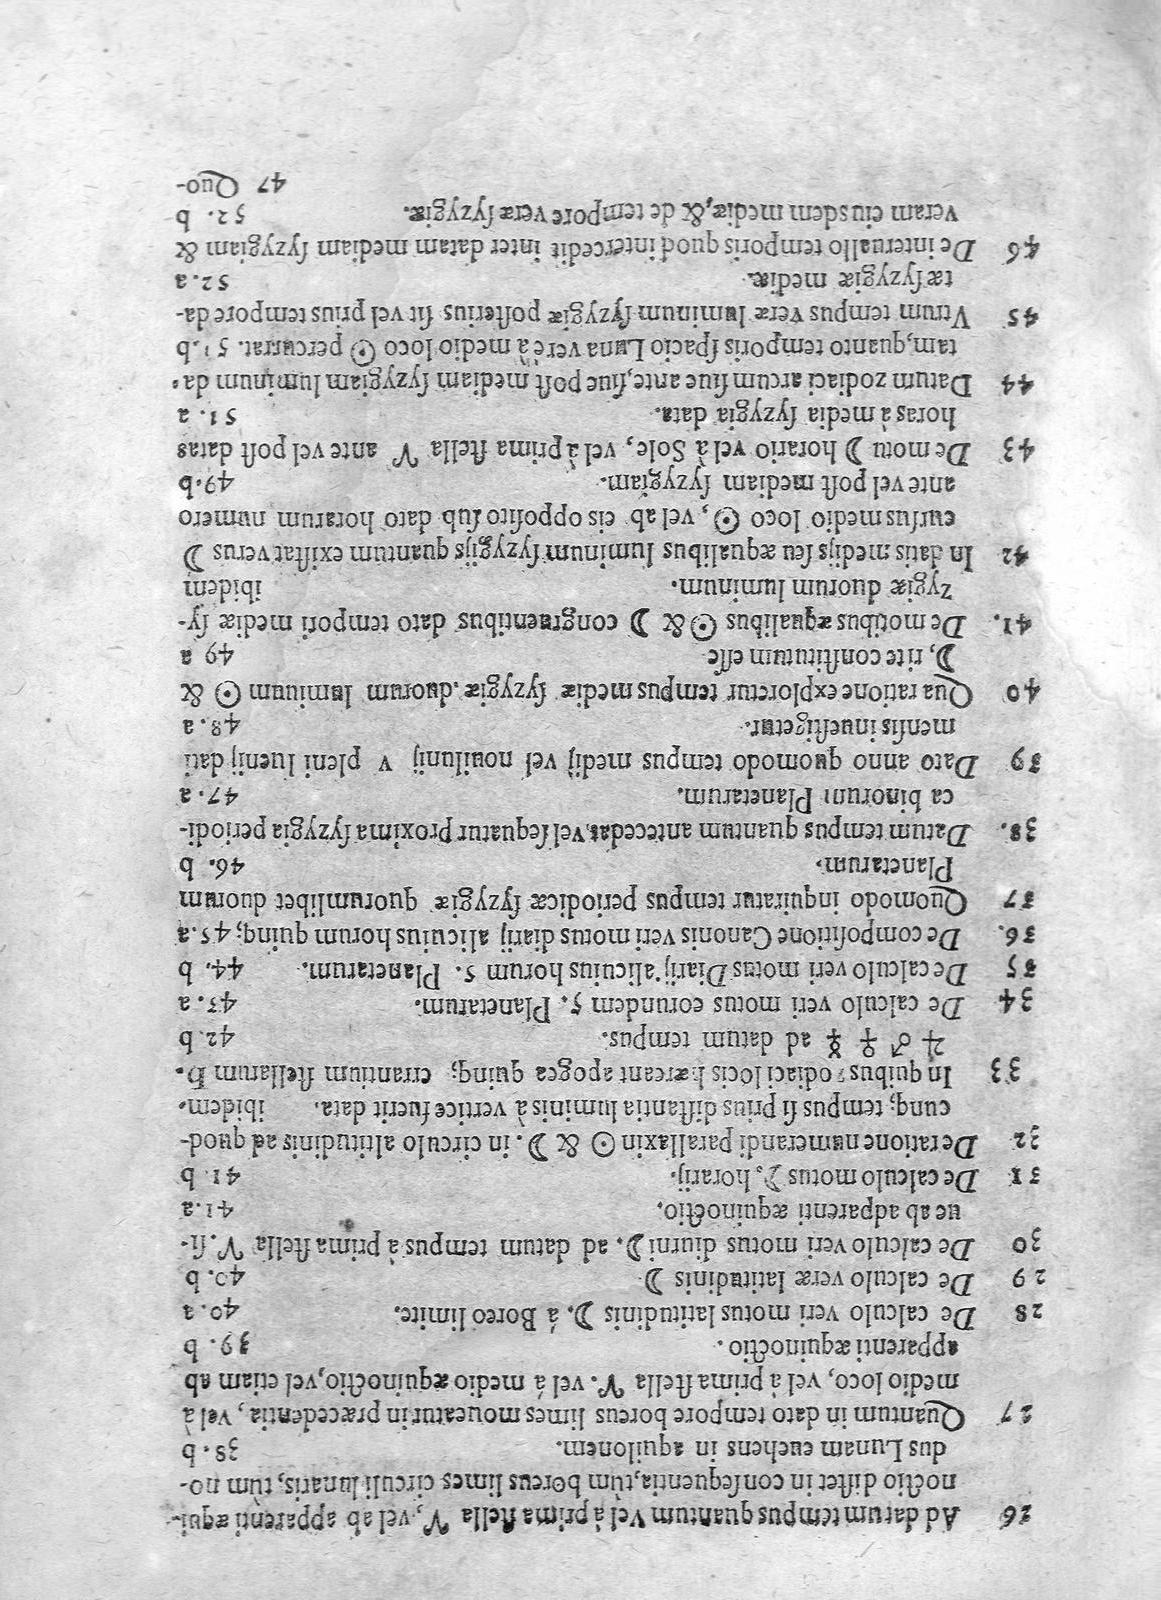 26 Ad datum tempus quantum vel à prima stella ♈, vel ab apparenti æqui-
noctio distet in consequentia, tùm boreus limes circuli lunaris, tùm no-
dus Lunam euehens in aquilonem. 38. b
27 Quantum in dato tempore boreus limes moueatur in præcedentia, vel à
medio loco, vel à prima stella ♈. vel á medio æquinoctio, vel etiam ab
apparenti æquinoctio. 39. b
28 De calculo veri motus latitudinis ☽. á Boreo limite. 40. a
29 De calculo veræ latitudinis ☽ 40. b
30 De calculo veri motus diurni ☽. ad datum tempus à prima stella ♈. si-
ue ab adparenti æquinoctio. 41. a
31 De calculo motus ☽, horarij. 41. b
32 De ratione numerandi parallaxin ☉ & ☽. in circulo altitudinis ad quod-
cunq; tempus si prius distantia luminis à vertice fuerit data. ibidem.
33 In quibus zodiaci locis hæreant apogea quinq; errantium stellarum ♄.
♃ ♂ ♀ ☿ ad datum tempus. 42. b
34 De calculo veri motus eorundem 5. Planetarum. 43. a
35 De calculo veri motus Diarij alicuius horum 5. Planetarum. 44. b
36. De compositione Canonis veri motus diarij alicuius horum quinq; 45. a
37 Quomodo inquiratur tempus periodicæ syzygiæ quorumlibet duorum
Planetarum. 46. b
38. Datum tempus quantum antecedat, vel sequatur proxima syzygia periodi-
ca binorum Planetarum. 47. a
39 Dato anno quomodo tempus medij vel nouilunij v pleni luenij dati
mensis inuestigetur. 48. a
40 Qua ratione exploretur tempus mediæ syzygiæ. duorum luminum ☉ &
☽, rite constitutum esse 49 a
41. De motibus æqualibus ☉ & ☽ congruentibus dato tempori mediæ sy-
zygiæ duorum luminum. ibidem
42 In datis medijs seu æqualibus luminum syzygijs quantum exsistat verus ☽
cursus medio loco ☉, vel ab eis opposito sub dato horarum numero
ante vel post mediam syzygiam. 49. b
43 De motu ☽ horario vel à Sole, vel à prima stella ♈ ante vel post datas
horas à media syzygia data. 51. a
44 Datum zodiaci arcum siue ante, siue post mediam syzygiam luminum da-
tam, quanto temporis spacio Luna verè à medio loco ☉ percurrat. 51. b
45 Vtrum tempus veræ luminum syzygiæ posterius sit vel prius tempore da-
tæ syzygiæ mediæ. 52. a
46 De interuallo temporis quod intercedit inter datam mediam syzygiam &
veram eiusdem mediæ, & de tempore veræ syzygiæ. 52. b
47 Quo-